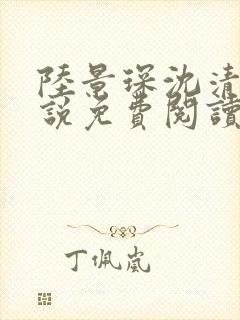 陸景琛沈清
說免費閱讀
丁佩嵐